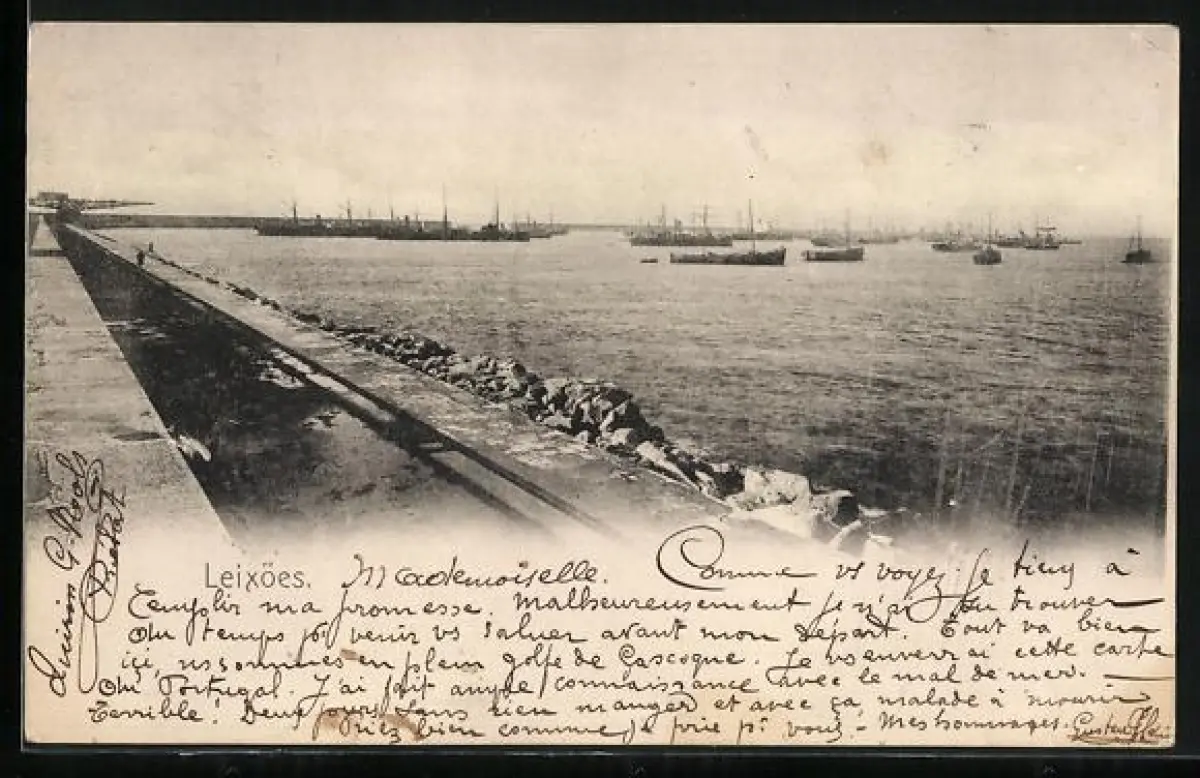 Leixões. Mademoiselle. Comme vs voyez je tiens à
remplir ma promesse. Malheureusement je n'ai pu trouver
du temps pr venir vs saluer avant mon départ. Tout va bien
içi, ns sommes en plein golfe de Gascogne. Je vs enverrai cette carte
du Portugal. J'ai fait ample connaissance avec le mal de mer.
Terrible! Deux jours sans rien manger et avec ça malade à mourir
Priez bien comme je prie pr vous - Mes hommages.